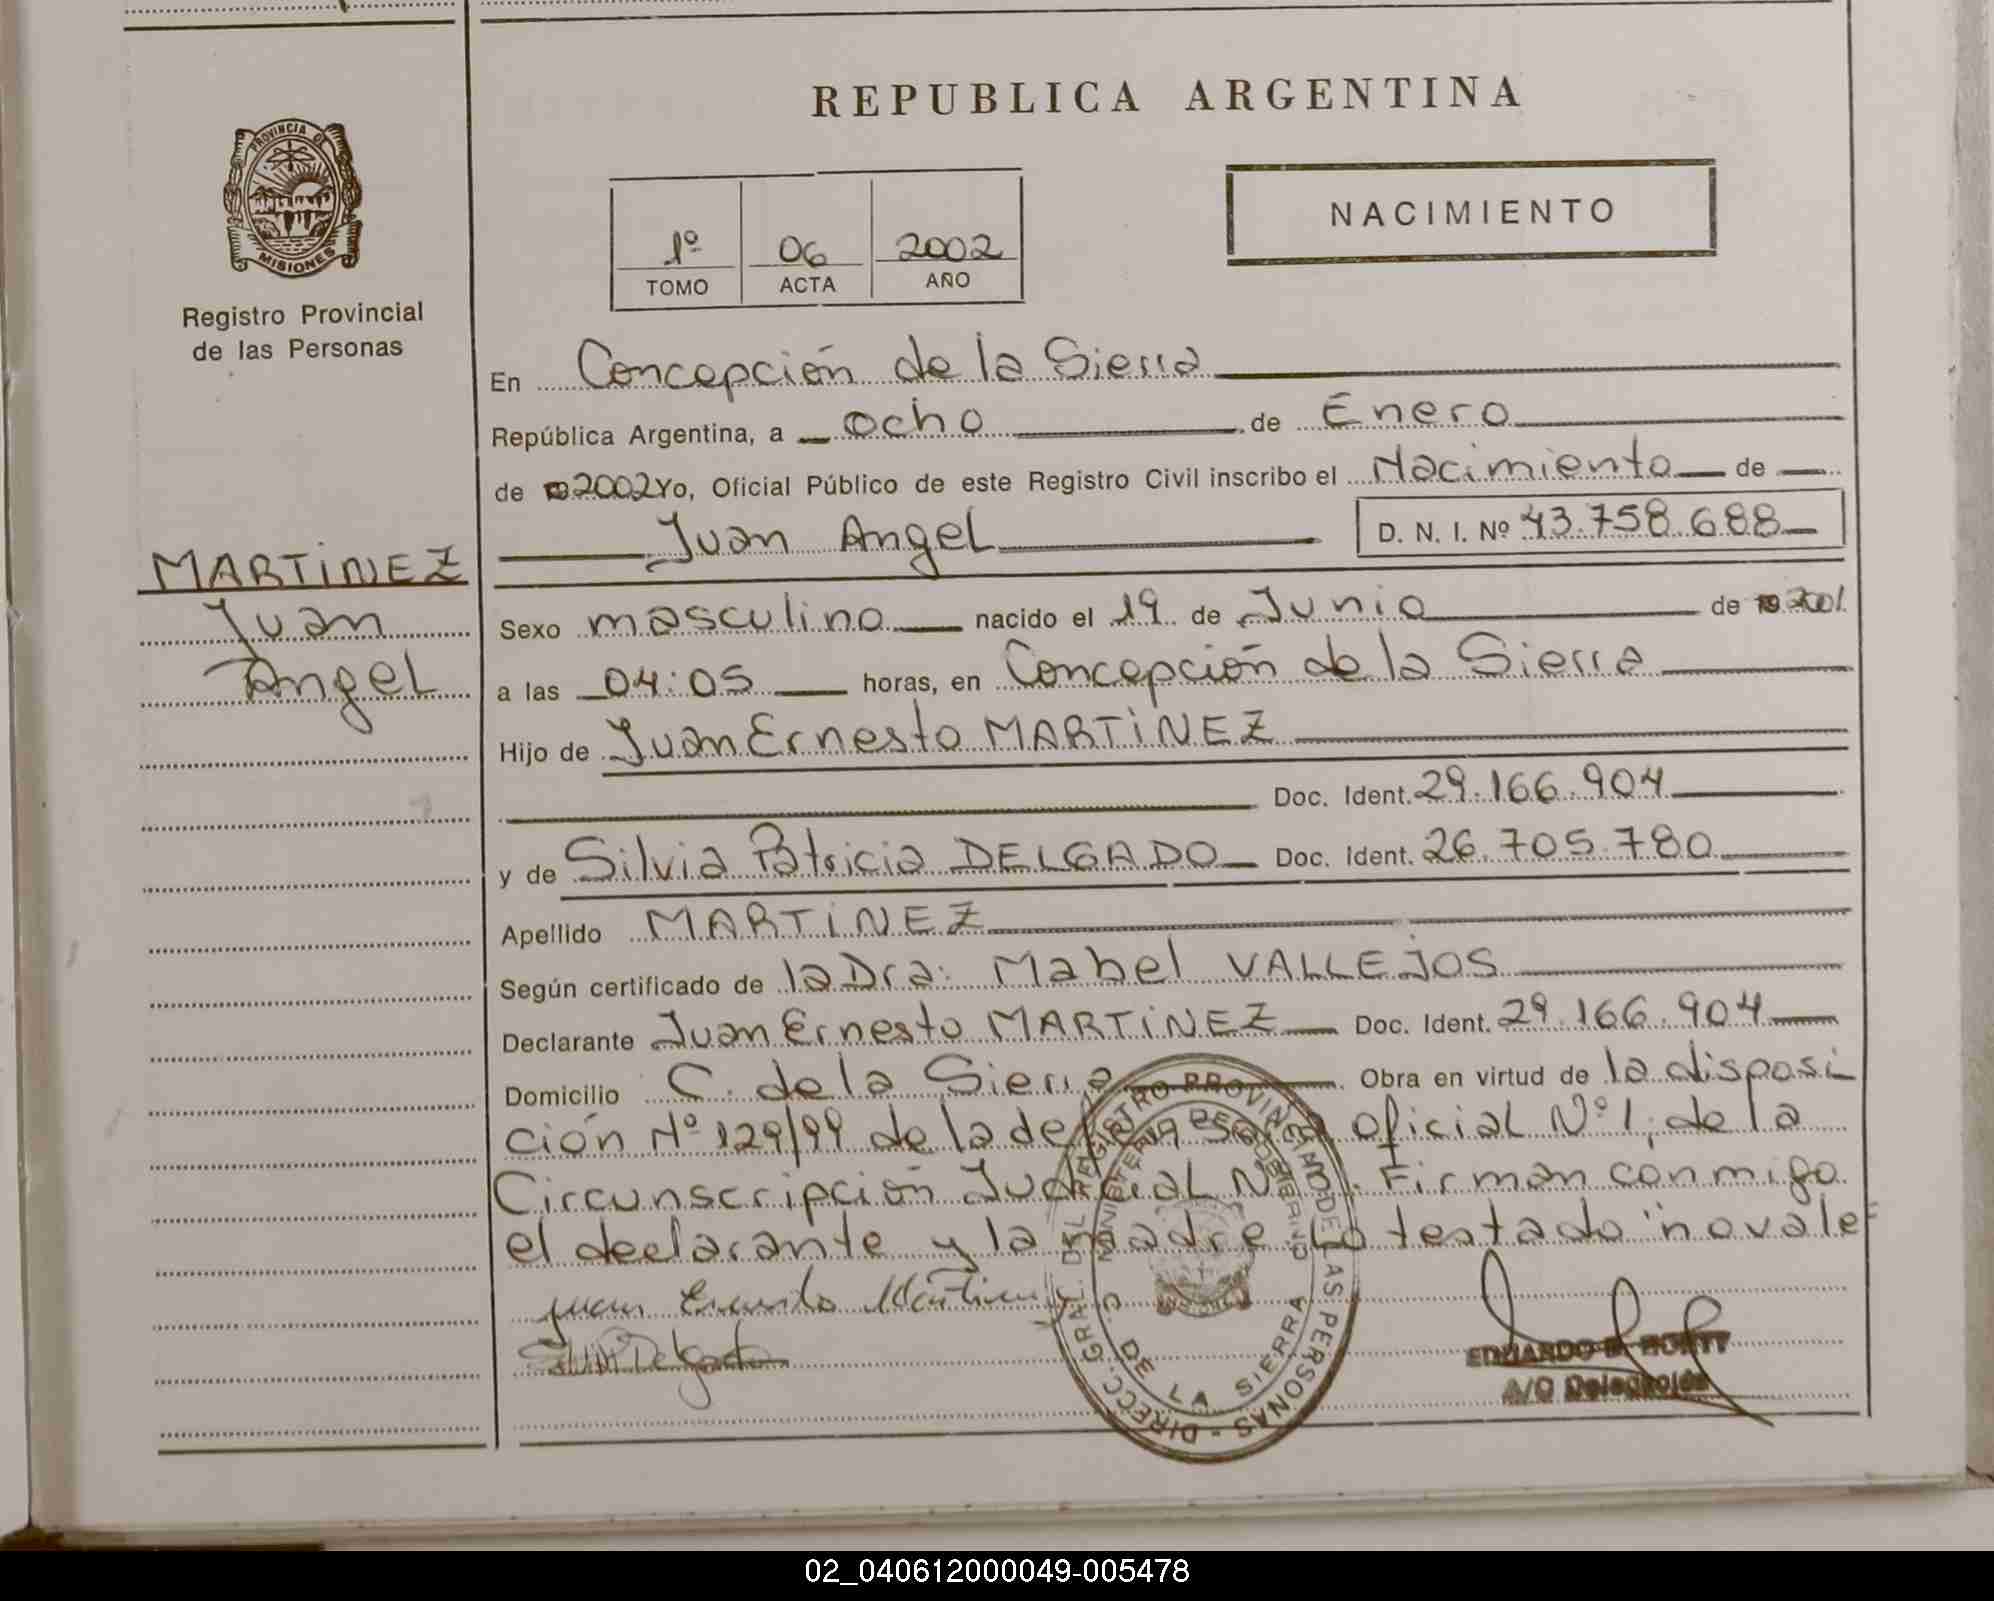 REPUBLICA ARGENTINA
PROVINCIA DE
MISIONES
Registro Provincial
de las Personas
1º 06 2002
TOMO ACTA AÑO
NACIMIENTO
En Concepción de la Sierra
República Argentina, a ocho de Enero
de 2002 Yo, Oficial Público de este Registro Civil inscribo el Nacimiento de
Juan Angel D. N. I. Nº 43.758.688
MARTINEZ
Juan
Angel
Sexo masculino nacido el 19 de Junio de 2001
a las 04:05 horas, en Concepción de la Sierra
Hijo de Juan Ernesto MARTINEZ
Doc. Ident. 29.166.904
y de Silvia Patricia DELGADO Doc. Ident. 26.705.780
Apellido MARTINEZ
Según certificado de la Dra: Mabel VALLEJOS
Declarante Juan Ernesto MARTINEZ Doc. Ident. 29.166.904
Domicilio C. de la Sierra Obra en virtud de la disposi
ción Nº 129/99 de la oficial Nº 1, de la
Circunscripción Judicial Firman conmigo
el declarante y la madre Lo testado no vale
Juan Ernesto Martinez
Silvia Delgado
DIRECC. GRAL. DEL REGISTRO PROVINCIAL DE LAS PERSONAS
MINISTERIO DE GOBIERNO
C. DE LA SIERRA
EDUARDO
A/C
02_040612000049-005478